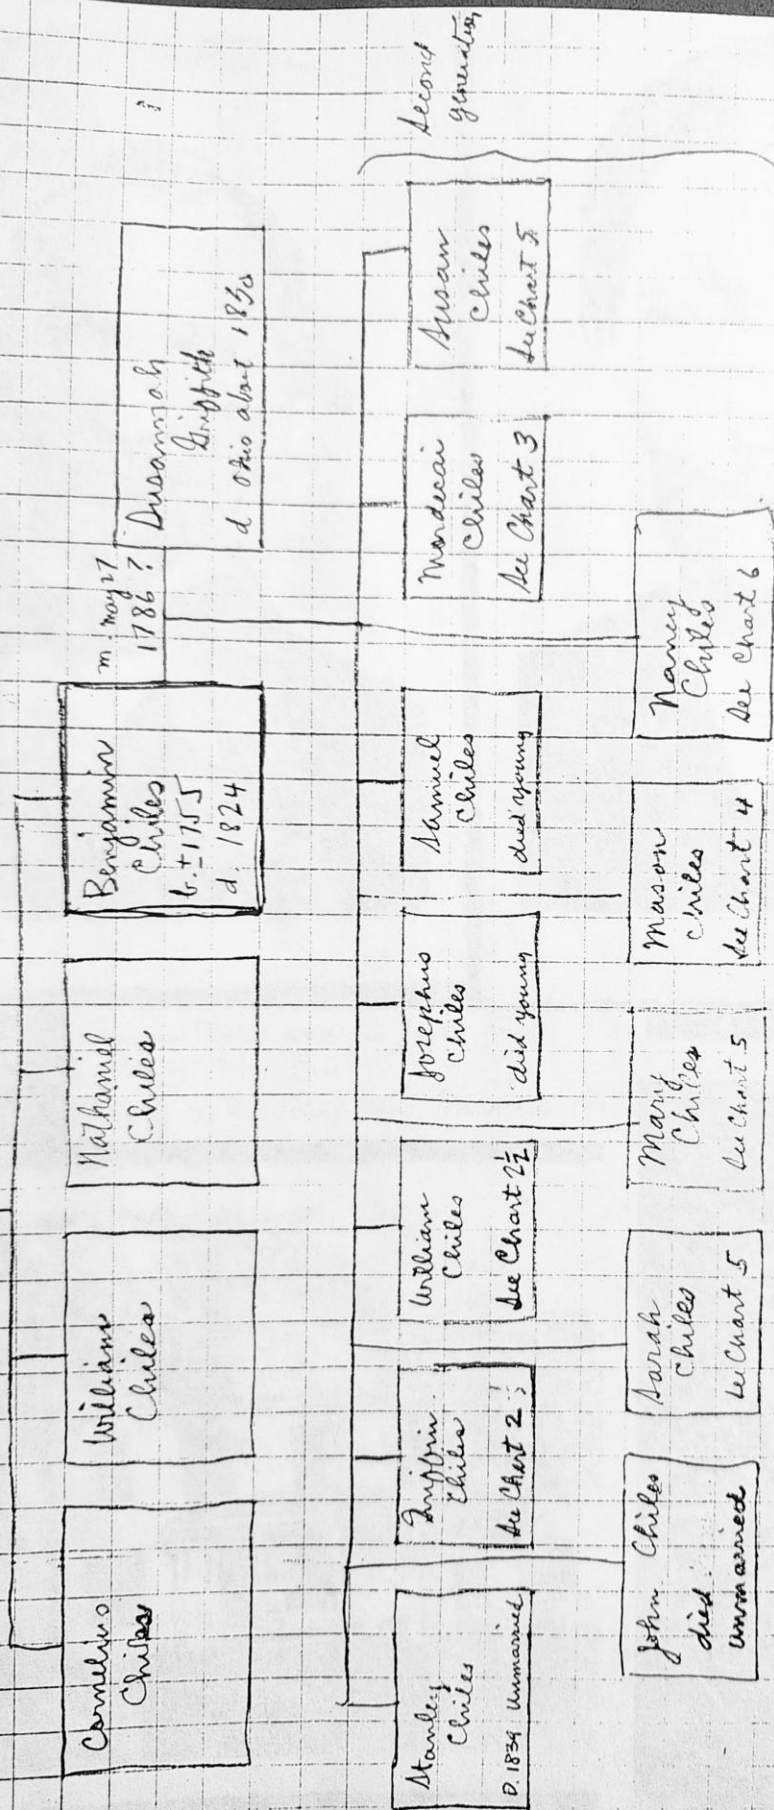 Cornelius
Chiles
William
Chiles
Nathaniel
Chiles
Benjamin
Chiles
b. ± 1755
d. 1824
m. May 27
1786 ?
Susannah
Griffith
d Ohio about 1830
Second
generation
Stanley
Chiles
D. 1834 Unmarried
Griffin
Chiles
See Chart 2
William
Chiles
See Chart 2½
Josephus
Chiles
died young
Samuel
Chiles
died young
Mordecai
Chiles
See Chart 3
Susan
Chiles
See Chart 5
John Chiles
died
unmarried
Sarah
Chiles
See Chart 5
Mary
Chiles
See Chart 5
Mason
Chiles
See Chart 4
Nancy
Chiles
See Chart 6